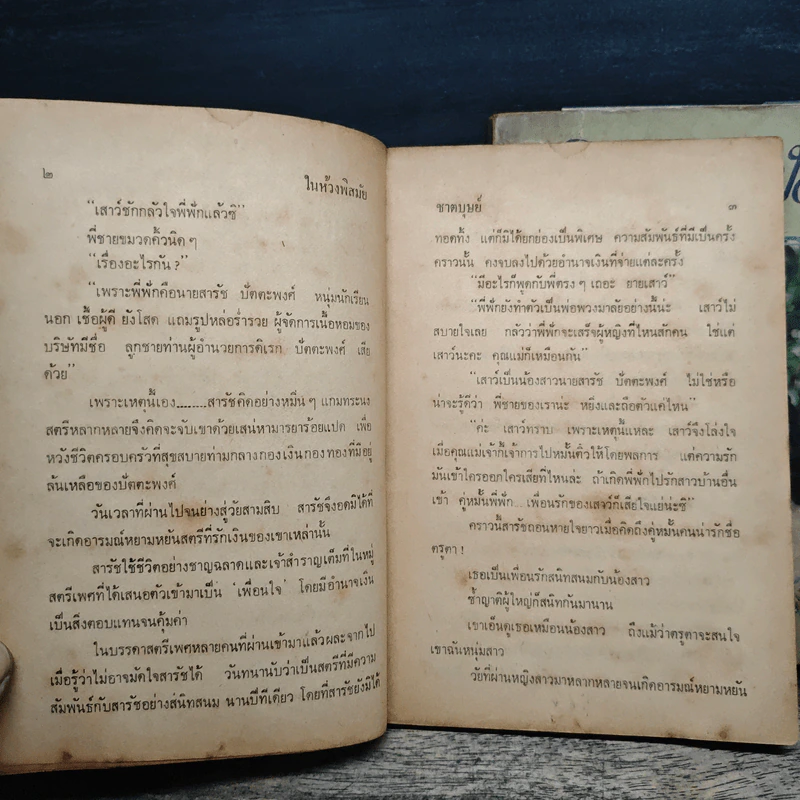 ๒
ในห้วงพิสมัย
“เสาว์ชักกลัวใจพี่พักแล้วซิ”
พี่ชายขมวดคิ้วนิดๆ
“เรื่องอะไรกัน?”
“เพราะพี่พักคือนายสารัช ปัตตะพงศ์ หนุ่มนักเรียน
นอก เชื้อผู้ดี ยังโสด แถมรูปหล่อร่ำรวย ผู้จัดการเนื้อหอมของ
บริษัทมีชื่อ ลูกชายท่านผู้อำนวยการดิเรก ปัตตะพงศ์ เสีย
ด้วย”
เพราะเหตุนี้เอง........สารัชคิดอย่างหมิ่นๆ แกมทระนง
สตรีหลากหลายจึงคิดจะจับเขาด้วยเสน่หามารยาร้อยแปด เพื่อ
หวังชีวิตครอบครัวที่สุขสบายท่ามกลางกองเงินกองทองที่มีอยู่
ล้นเหลือของปัตตะพงศ์
วันเวลาที่ผ่านไปจนย่างสู่วัยสามสิบ สารัชจึงอดมิได้ที่
จะเกิดอารมณ์หยามหยันสตรีที่รักเงินของเขาเหล่านั้น
สารัชใช้ชีวิตอย่างชาญฉลาดและเจ้าสำราญเต็มที่ในหมู่
สตรีเพศที่ได้เสนอตัวเข้ามาเป็น ‘เพื่อนใจ’ โดยมีอำนาจเงิน
เป็นสิ่งตอบแทนจนคุ้มค่า
ในบรรดาสตรีเพศหลายคนที่ผ่านเข้ามาแล้วผละจากไป
เมื่อรู้ว่าไม่อาจมัดใจสารัชได้ วันทนานับว่าเป็นสตรีที่มีความ
สัมพันธ์กับสารัชอย่างสนิทสนม นานปีทีเดียว โดยที่สารัชยังมิได้
ชาตบุษย์
๓
ทอดทิ้ง แต่ก็มิได้ยกย่องเป็นพิเศษ ความสัมพันธ์ที่มีเป็นครั้ง
คราวนั้น คงจบลงไปด้วยอำนาจเงินที่จ่ายแต่ละครั้ง
“มีอะไรก็พูดกับพี่ตรงๆ เถอะ ยายเสาว์”
“พี่พักยังทำตัวเป็นพ่อพวงมาลัยอย่างนี้น่ะ เสาว์ไม่
สบายใจเลย กลัวว่าพี่พักจะเสร็จผู้หญิงที่ไหนสักคน ใช่แต่
เสาว์นะคะ คุณแม่ก็เหมือนกัน”
“เสาว์เป็นน้องสาวนายสารัช ปัตตะพงศ์ ไม่ใช่หรือ
น่าจะรู้ดีว่า พี่ชายของเราน่ะ หยิ่งและถือตัวแค่ไหน”
“ค่ะ เสาว์ทราบ เพราะเหตุนี้แหละ เสาว์จึงโล่งใจ
เมื่อคุณแม่เจ้ากี้เจ้าการไปหมั้นตรูตาให้โดยพลการ แต่ความรัก
มันเข้าใครออกใครเสียที่ไหนล่ะ ถ้าเกิดพี่พักไปรักสาวบ้านอื่น
เข้า คู่หมั้นพี่พัก...เพื่อนรักของเสาว์ก็เสียใจแย่น่ะซิ”
คราวนี้สารัชถอนหายใจยาวเมื่อคิดถึงคู่หมั้นคนน่ารักชื่อ
ตรูตา!
เธอเป็นเพื่อนรักสนิทสนมกับน้องสาว
ซ้ำญาติผู้ใหญ่ก็สนิทกันมานาน
เขาเอ็นดูเธอเหมือนน้องสาว ถึงแม้ว่าตรูตาจะสนใจ
เขาฉันหนุ่มสาว
วัยที่ผ่านหญิงสาวมาหลากหลายจนเกิดอารมณ์หยามหยัน